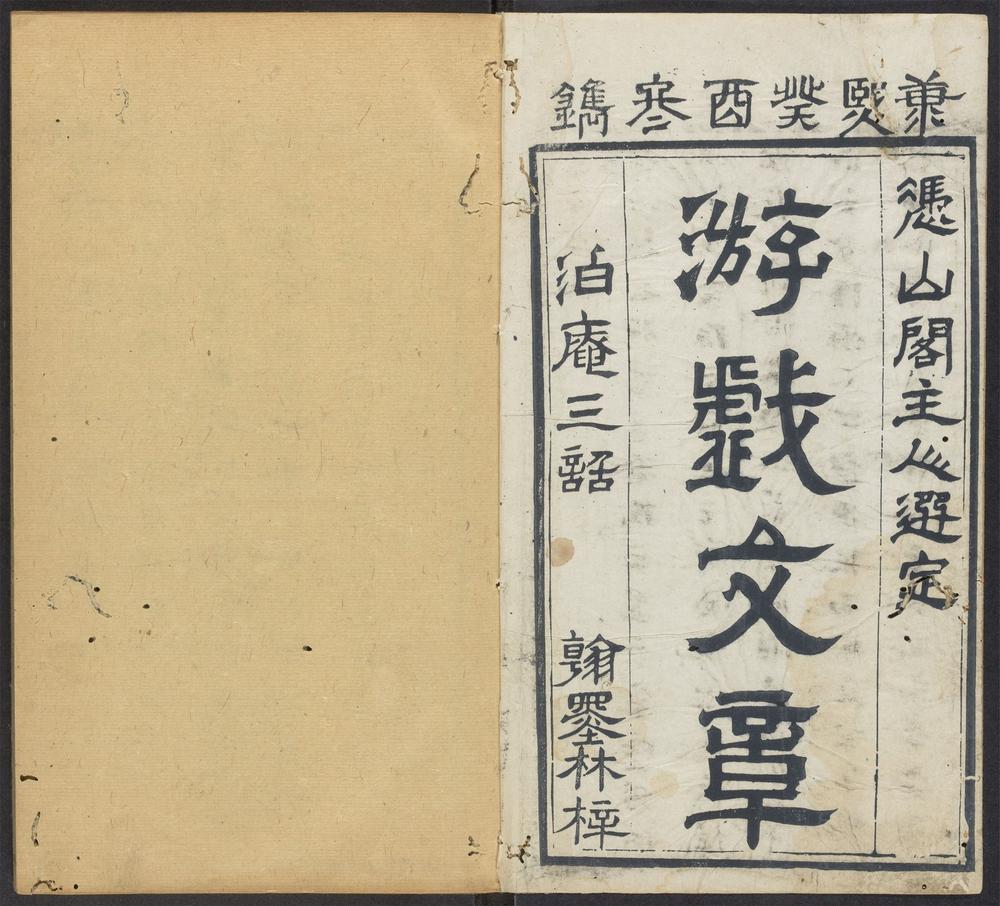 康熙癸酉冬鐫
憑山閣主人選定
游戲文章
泊庵三話
翰墨林梓